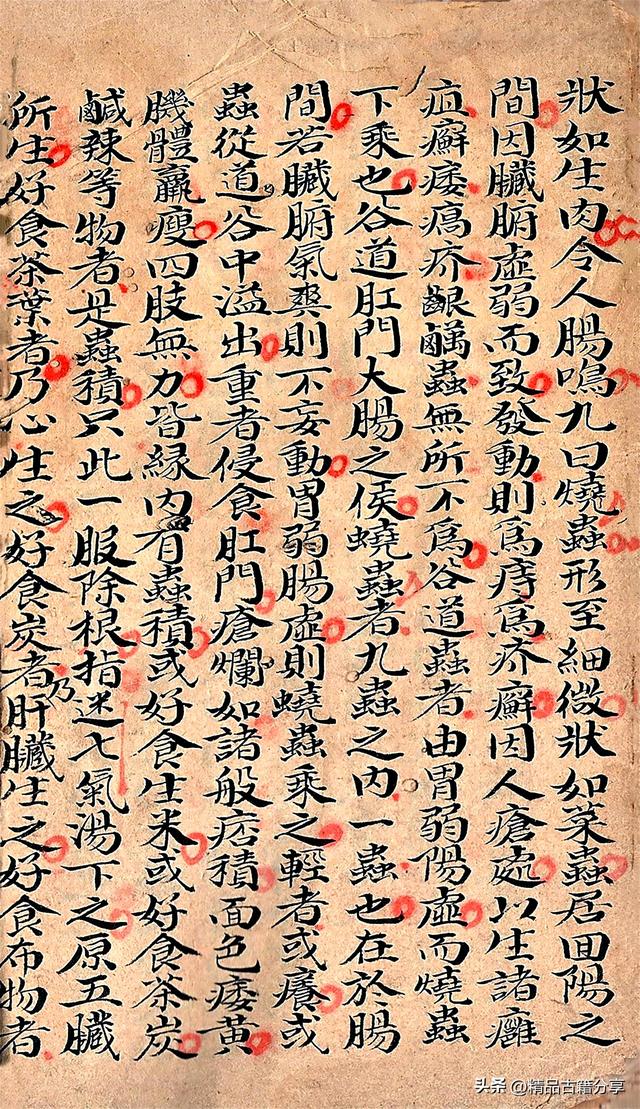 狀如生肉令人腸鳴九曰燒蟲形至細微狀如菜蟲居回陽之
間因臟腑虛弱而致發動則爲痔爲疥癬因人瘡處以生諸癰
疽癬瘻瘑疥齦齲蟲無所不爲谷道蟲者由胃弱陽虛而燒蟲
下乘也谷道肛門大腸之侯蟯蟲者九蟲之内一蟲也在於腸
間若臟腑氣爽則不妄動胃弱腸虛則蟯蟲乘之輕者或癢或
蟲從道谷中溢出重者侵食肛門瘡爛如諸般痞積面色痿黄
臕體羸瘦四肢無力皆緣内有蟲積或好食生米或好食茶炭
鹹辣等物者是蟲積只此一服除根指迷七氣湯下之原五臟
所生好食茶葉者乃心生之好食炭者乃肝臟生之好食布物者
头条 @精品古籍分享